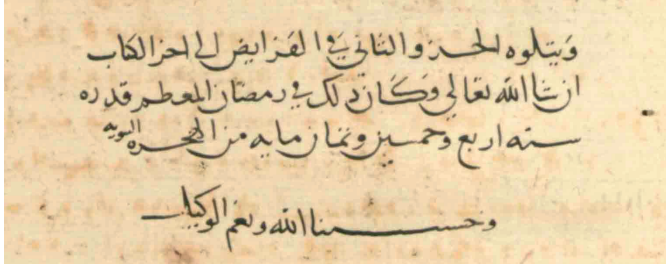 ويتلوه الجزو الثاني في الفرايض الى اخر الكتاب
ان شا الله تعالى وكان ذلك في رمضان المعظم قدره
سنه اربع وخمسين وثمان مايه من الهجره النبويه
وحسبنا الله ونعم الوكيل